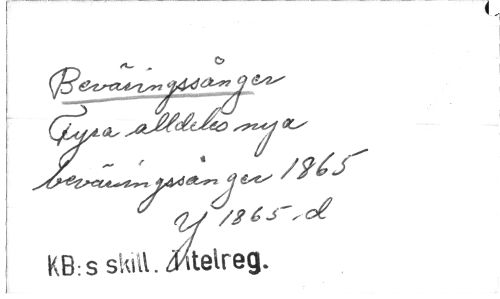 Beväringssånger
Fyra alldeles nya
beväringssånger 1865
Y 1865.d
KB:s skill. Titelreg.